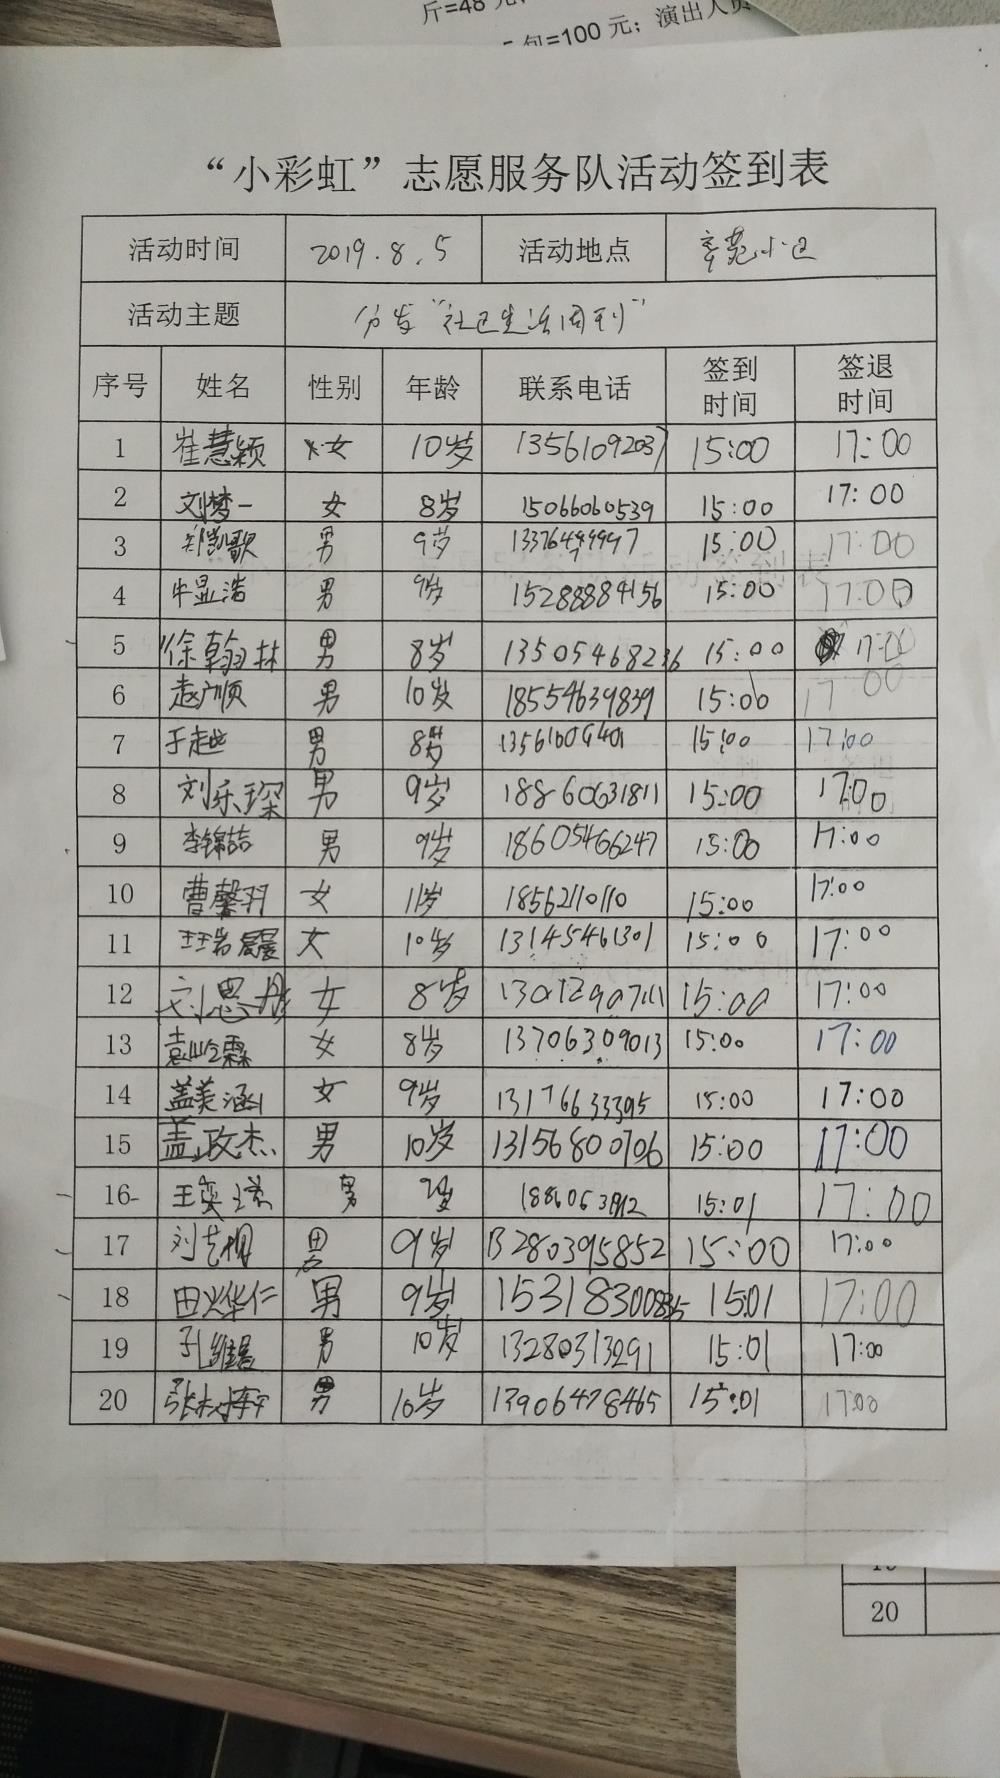 斤=48元
包=100元；演出人员
“小彩虹”志愿服务队活动签到表
活动时间 2019.8.5 活动地点 莘苑小区
活动主题 分发“社区生活周刊”
序号 姓名 性别 年龄 联系电话 签到时间 签退时间
1 崔慧颖 女 10岁 13561092037 15:00 17:00
2 刘梦一 女 8岁 15066060539 15:00 17:00
3 郑凯歌 男 9岁 15:00 17:00
4 牛显浩 男 9岁 15288884156 15:00 17:00
5 徐翰林 男 8岁 13505468236 15:00 17:00
6 男 10岁 18554639839 15:00 17:00
7 于越 男 8岁 15:00 17:00
8 刘乐琛 男 9岁 18860631811 15:00 17:00
9 李锦喆 男 9岁 18605466247 15:00 17:00
10 曹馨羽 女 11岁 18562110110 15:00 17:00
11 女 10岁 13145461301 15:00 17:00
12 刘思彤 女 8岁 15:00 17:00
13 女 8岁 13706309013 15:00 17:00
14 盖美涵 女 9岁 13176633395 15:00 17:00
15 盖政杰 男 10岁 13156800706 15:00 17:00
16 男 15:01 17:00
17 男 9岁 13280395852 15:00 17:00
18 男 9岁 15:01 17:00
19 男 10岁 13280313291 15:01 17:00
20 男 10岁 13906478465 15:01 17:00
20